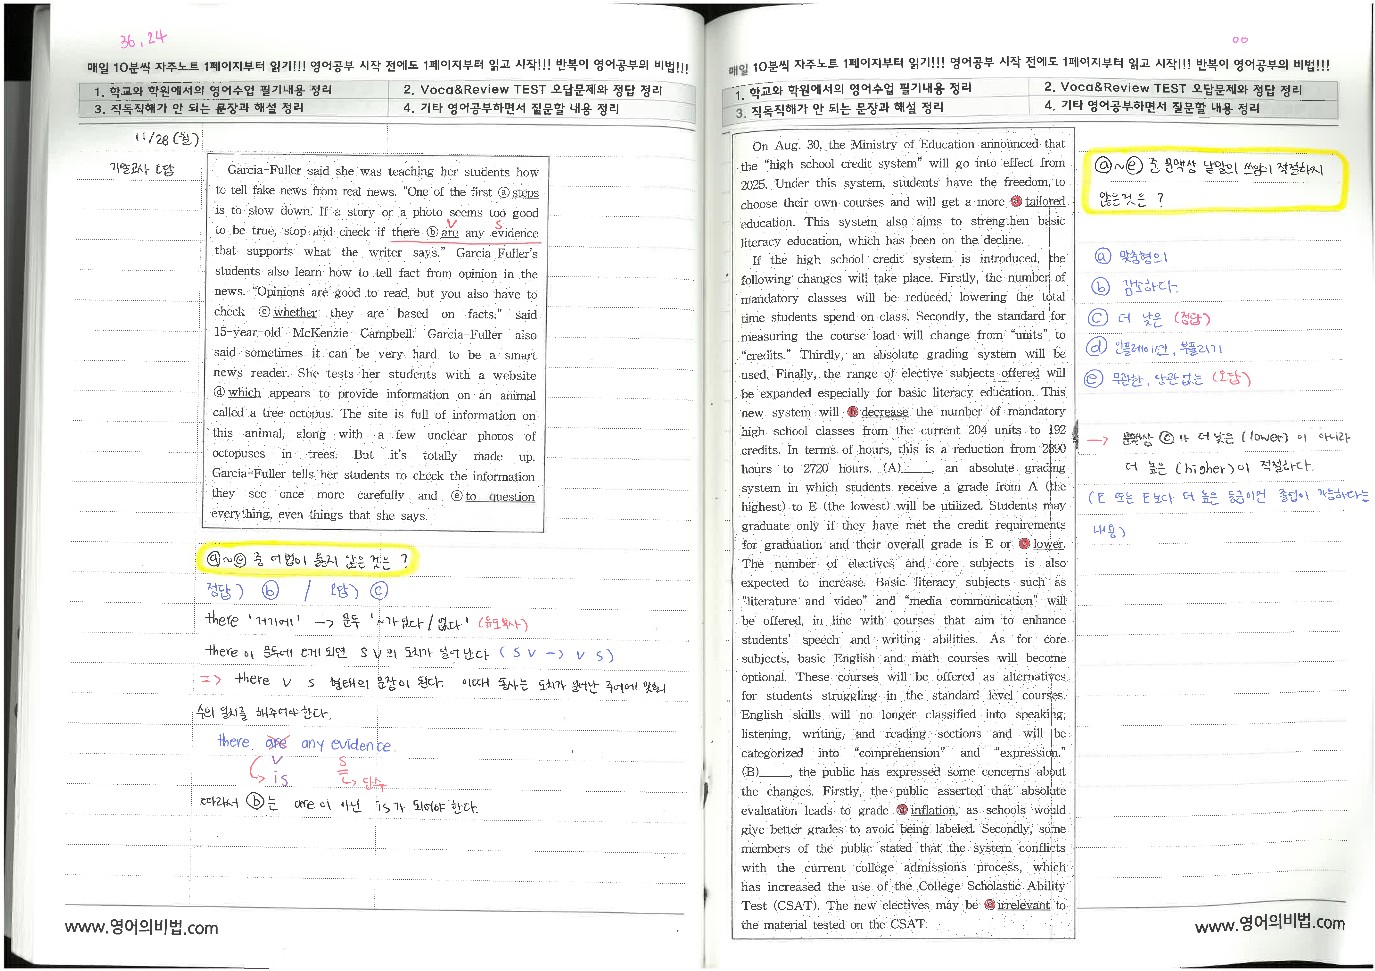 36, 24
매일 10분씩 자주노트 1페이지부터 읽기!!! 영어공부 시작 전에도 1페이지부터 읽고 시작!!! 반복이 영어공부의 비법!!!
1. 학교와 학원에서의 영어수업 필기내용 정리 2. Voca&Review TEST 오답문제와 정답 정리
3. 직독직해가 안 되는 문장과 해설 정리 4. 기타 영어공부하면서 질문할 내용 정리
11/28 (월)
기말고사 오답
Garcia-Fuller said she was teaching her students how
to tell fake news from real news. "One of the first ⓐ steps
is to slow down. If a story or a photo seems too good
V S
to be true, stop and check if there ⓑ are any evidence
that supports what the writer says." Garcia Fuller's
students also learn how to tell fact from opinion in the
news. "Opinions are good to read, but you also have to
check ⓒ whether they are based on facts," said
15-year-old McKenzie Campbell. Garcia-Fuller also
said sometimes it can be very hard to be a smart
news reader. She tests her students with a website
ⓓ which appears to provide information on an animal
called a tree octopus. The site is full of information on
this animal, along with a few unclear photos of
octopuses in trees. But it's totally made up.
Garcia-Fuller tells her students to check the information
they see once more carefully and ⓔ to question
everything, even things that she says.
ⓐ~ⓔ 중 어법이 옳지 않은 것은?
정답) ⓑ / 오답) ⓒ
there '거기에' -> 문두 '~가 있다/없다' (유도부사)
there이 문두에 오게 되면 S V의 도치가 일어난다 (S V -> V S)
=> there V S 형태의 문장이 된다. 이때 동사는 도치가 일어난 주어에 맞춰
수의 일치를 해주어야 한다.
there are any evidence
V S
is 단수
따라서 ⓑ는 are이 아닌 is가 되어야 한다.
www.영어의비법.com
매일 10분씩 자주노트 1페이지부터 읽기!!! 영어공부 시작 전에도 1페이지부터 읽고 시작!!! 반복이 영어공부의 비법!!!
1. 학교와 학원에서의 영어수업 필기내용 정리 2. Voca&Review TEST 오답문제와 정답 정리
3. 직독직해가 안 되는 문장과 해설 정리 4. 기타 영어공부하면서 질문할 내용 정리
On Aug. 30, the Ministry of Education announced that
the "high school credit system" will go into effect from
2025. Under this system, students have the freedom to
choose their own courses and will get a more ⓐ tailored
education. This system also aims to strengthen basic
literacy education, which has been on the decline.
If the high school credit system is introduced, the
following changes will take place. Firstly, the number of
mandatory classes will be reduced, lowering the total
time students spend on class. Secondly, the standard for
measuring the course load will change from "units" to
"credits." Thirdly, an absolute grading system will be
used. Finally, the range of elective subjects offered will
be expanded especially for basic literacy education. This
new system will ⓑ decrease the number of mandatory
high school classes from the current 204 units to 192
credits. In terms of hours, this is a reduction from 2890
hours to 2720 hours. (A)____, an absolute grading
system in which students receive a grade from A (the
highest) to E (the lowest) will be utilized. Students may
graduate only if they have met the credit requirements
for graduation and their overall grade is E or ⓒ lower.
The number of electives and core subjects is also
expected to increase. Basic literacy subjects such as
"literature and video" and "media communication" will
be offered, in line with courses that aim to enhance
students' speech and writing abilities. As for core
subjects, basic English and math courses will become
optional. These courses will be offered as alternatives
for students struggling in the standard level courses.
English skills will no longer classified into speaking,
listening, writing, and reading sections and will be
categorized into "comprehension" and "expression."
(B)____, the public has expressed some concerns about
the changes. Firstly, the public asserted that absolute
evaluation leads to grade ⓓ inflation, as schools would
give better grades to avoid being labeled. Secondly, some
members of the public stated that the system conflicts
with the current college admissions process, which
has increased the use of the College Scholastic Ability
Test (CSAT). The new electives may be ⓔ irrelevant to
the material tested on the CSAT.
ⓐ~ⓔ 중 문맥상 낱말의 쓰임이 적절하지
않은 것은?
ⓐ 맞춤형의
ⓑ 감소하다
ⓒ 더 낮은 (정답)
ⓓ 인플레이션, 부풀리기
ⓔ 무관한, 상관없는 (오답)
-> 문맥상 ⓒ가 더 낮은 (lower) 이 아니라
더 높은 (higher)이 적절하다.
(E 또는 E보다 더 높은 등급이면 졸업이 가능하다는
내용)
www.영어의비법.com